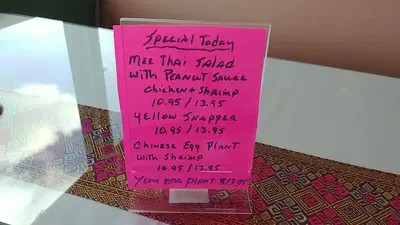 Special Today
Mee Thai Salad
with Peanut Sauce
Chicken + Shrimp
10.95 / 13.95
Yellow Snapper
10.95 / 13.95
Chinese Egg Plant
with Shrimp
10.95 / 13.95
Yum Egg Plant $13.95